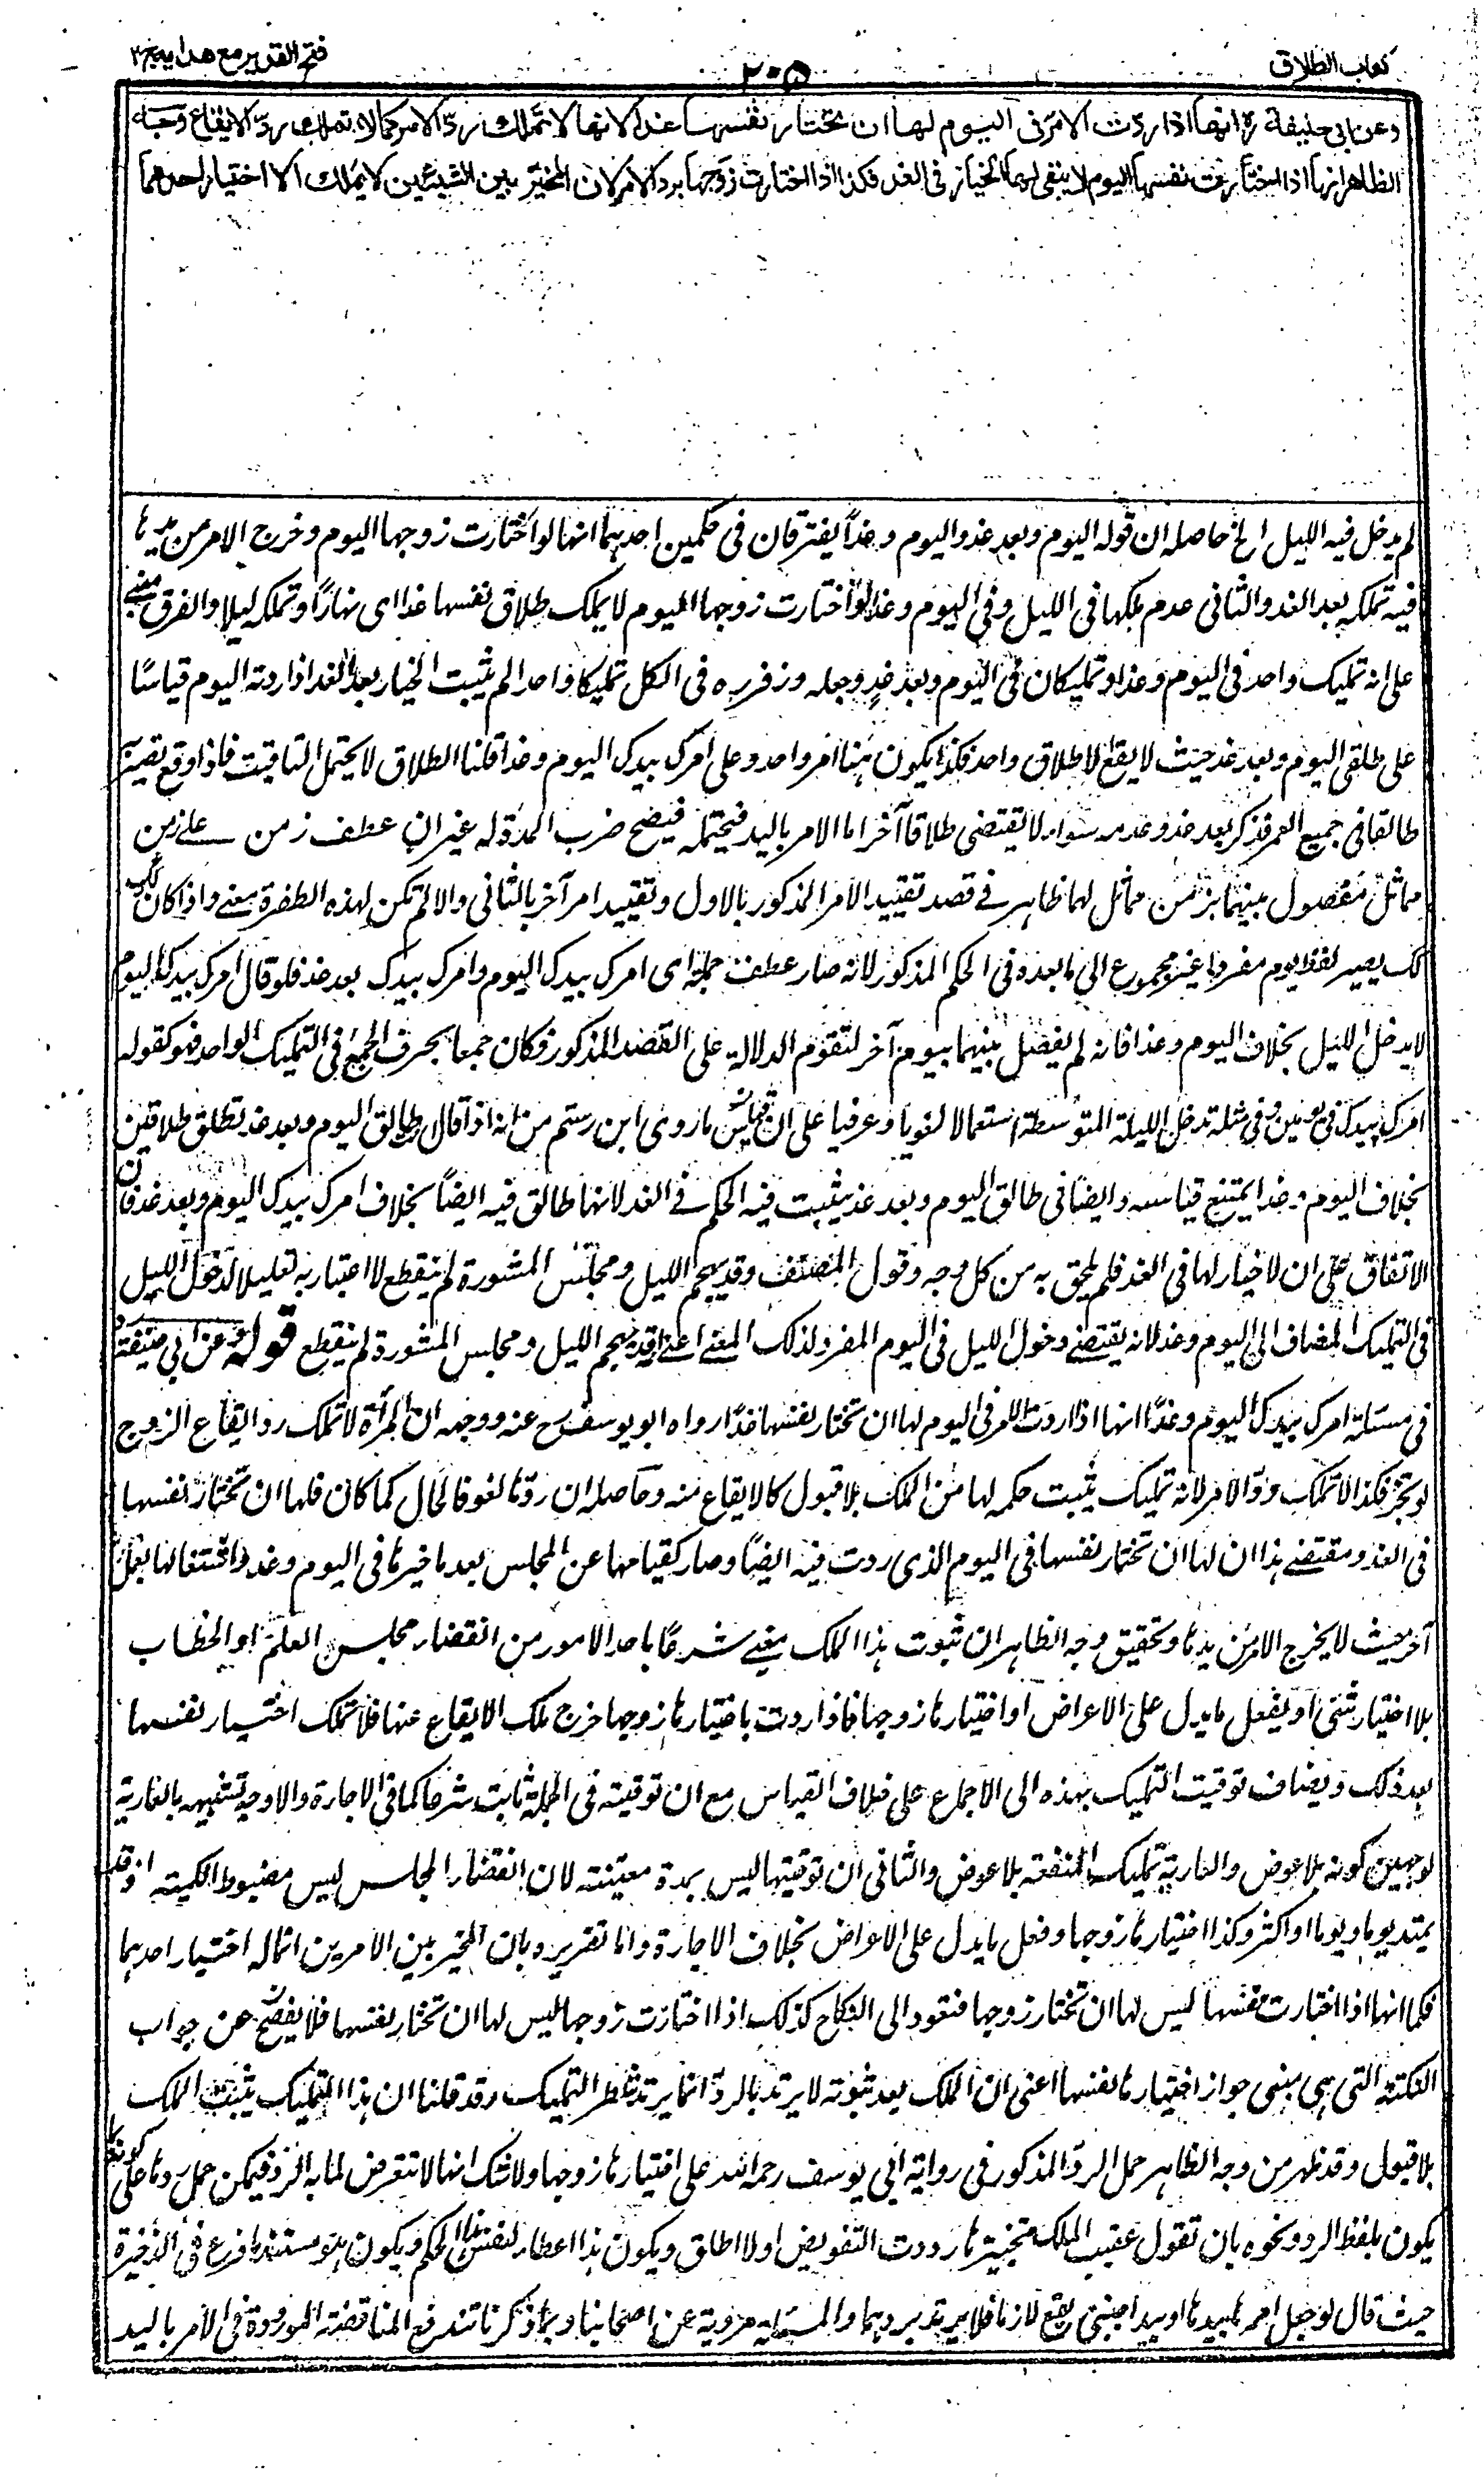 كتاب الطلاق
٢٠٥
فتح القدير مع هدايہ ج ٣
وعن ابى حنيفة ره انها اذا ردت الامر فى اليوم لها ان تختار نفسها غدا لانها لا تملك رد الامر كما لا تملك رد الايقاع وجه
الظاهر انها اذا اختارت نفسها اليوم لا يبقى لها الخيار فى الغد فكذا اذا اختارت زوجها برد الامر لان المخير بين الشيئين لا يملك الا اختيار احدهما
لم يدخل فيه الليل الخ حاصله ان قوله اليوم وبعد غد واليوم وغداً يفترقان فى حكمين احدهما انها لو اختارت زوجها اليوم وخرج الامر من يدها
فيه تملكه بعد الغد والثانى عدم ملكها فى الليل وفى اليوم وغدا لو اختارت زوجها اليوم لا يملك طلاق نفسها غدا اى نهارًا وتملكه ليلا والفرق مبنى
على انه تمليك واحد فى اليوم وغدا وتمليكان فى اليوم وبعد غدٍ وجعله زفر ره فى الكل تمليكا واحدا لم يثبت الخيار بعد الغد اذا ردته اليوم قياسًا
على طلقى اليوم وبعد غد حيث لا يقع الا طلاق واحد فكذا يكون هنا امر واحد وعلى امرك بيدك اليوم وغدا قلنا الطلاق لا يحتمل التاقيت فاذا وقع تصير
طالقا فى جميع العمر فذكر بعد غد وعدمه سواء لا يقتضى طلاقا آخر اما الامر باليد فيحتمله فيصح ضرب المدة له غير ان عطف زمن على زمن
مماثل مفصول بينهما بزمن مماثل لهما ظاهر فى قصد تقييد الامر المذكور بالاول وتقييد امر آخر بالثانى والا لم تكن لهذه الطفرة معنى واذا كان
كك يصير لفظ يوم مفردا غير مجموع الى ما بعده فى الحكم المذكور لانه صار عطف جملة اى امرك بيدك اليوم وامرك بيدك بعد غد فلو قال امرك بيدك اليوم
لا يدخل الليل بخلاف اليوم وغدا فانه لم يفصل بينهما بيوم آخر لتقوم الدلالة على القصد المذكور فكان جمعا بحرف الجمع فى التمليك الواحد فهو كقوله
امرك بيدك فى يومين وفى مثله تدخل الليلة المتوسطة استعمالا لغويا وعرفيا على ان قياس ما روى ابن رستم من انه اذا قال طالق اليوم وبعد غد تطلق طلاقين
بخلاف اليوم وغدا يمتنع قياسه وايضا فى طالق اليوم وبعد غد يثبت فيه الحكم فى الغد لانها طالق فيه ايضاً بخلاف امرك بيدك اليوم وبعد غد فان
الاتفاق على ان لا خيار لها فى الغد فلم يلحق به من كل وجه وقول المصنف وقد يهجم الليل ومجلس المشورة لم ينقطع لا اعتبار به تعليلا لدخول الليل
فى التمليك المضاف الى اليوم وغد لانه يقتضى دخول الليل فى اليوم المفرد لذلك المعنى اعنى انه قد يهجم الليل ومجلس المشورة لم ينقطع قوله وعن ابى حنيفة
فى مسئلة امرك بيدك اليوم وغدًا انها اذا ردت الامر فى اليوم لها ان تختار نفسها غدًا رواه ابو يوسف رح عنه ووجهه ان المرأة لا تملك رد ايقاع الزوج
لو نجز فكذا لا تملك رد الامر لانه تمليك يثبت حكمه لها من الملك بلا قبول كالايقاع منه وحاصله ان ردها لغو فالحال كما كان فلها ان تختار نفسها
فى الغد ومقتضى هذا ان لها ان تختار نفسها فى اليوم الذى ردت فيه ايضًا وصار كقيامها عن المجلس بعد ما خيرها فى اليوم وغد واشتغالها بعمل
آخر حيث لا يخرج الامر من يدها وتحقيق وجه الظاهر ان ثبوت هذا الملك مغيى شرعًا باحد الامور من انقضاء مجلس العلم او الخطاب
بلا اختيار شئ او يفعل ما يدل على الاعراض او اختيارها زوجها فاذا ردت باختيارها زوجها خرج ملك الايقاع عنها فلا تملك اختيار نفسها
بعد ذلك ويضاف توقيت التمليك بهذه الى الاجماع على خلاف القياس مع ان توقيته فى الجملة ثابت شرعا كما فى الاجارة والاوجه تشبيهه بالعارية
لوجهين كونه بلا عوض والعارية تمليك المنفعة بلا عوض والثانى ان توقيتها ليس بمدة معينة لان انقضاء المجلس ليس مضبوط الكمية اذ قد
يمتد يوما ويوما او اكثر وكذا اختيارها زوجها وفعل ما يدل على الاعراض بخلاف الاجارة واما تقريره بان المخير بين الامرين انما له اختيار احدهما
فكما انها اذا اختارت نفسها ليس لها ان تختار زوجها فتعود الى النكاح كذلك اذا اختارت زوجها ليس لها ان تختار نفسها فلا يفصح عن جواب
النكتة التى هى مبنى جواز اختيارها نفسها اعنى ان الملك بعد ثبوته لا يرتد بالرد انما يرتد شطر التمليك وقد قلنا ان هذا التمليك يثبت الملك
بلا قبول وقد ظهر من وجه الظاهر حمل الرد المذكور فى رواية ابى يوسف رحمه الله على اختيارها زوجها ولا شك انها لا تتعرض لما به الرد فيمكن حمل ردها على كونها
يكون بلفظ الرد ونحوه بان تقول عقيب الملك بتخييرها رددت التفويض او لا اطلق ويكون هذا اعطاء لنفس هذا الحكم ويكون هو مستند فرع فى الذخيرة
حيث قال لو جعل امرها بيدها او بيد اجنبى يقع لازما فلا يرتد بردهما والمسئلة مروية عن اصحابنا وبما ذكرنا تندفع المناقضة الموردة فى الامر باليد